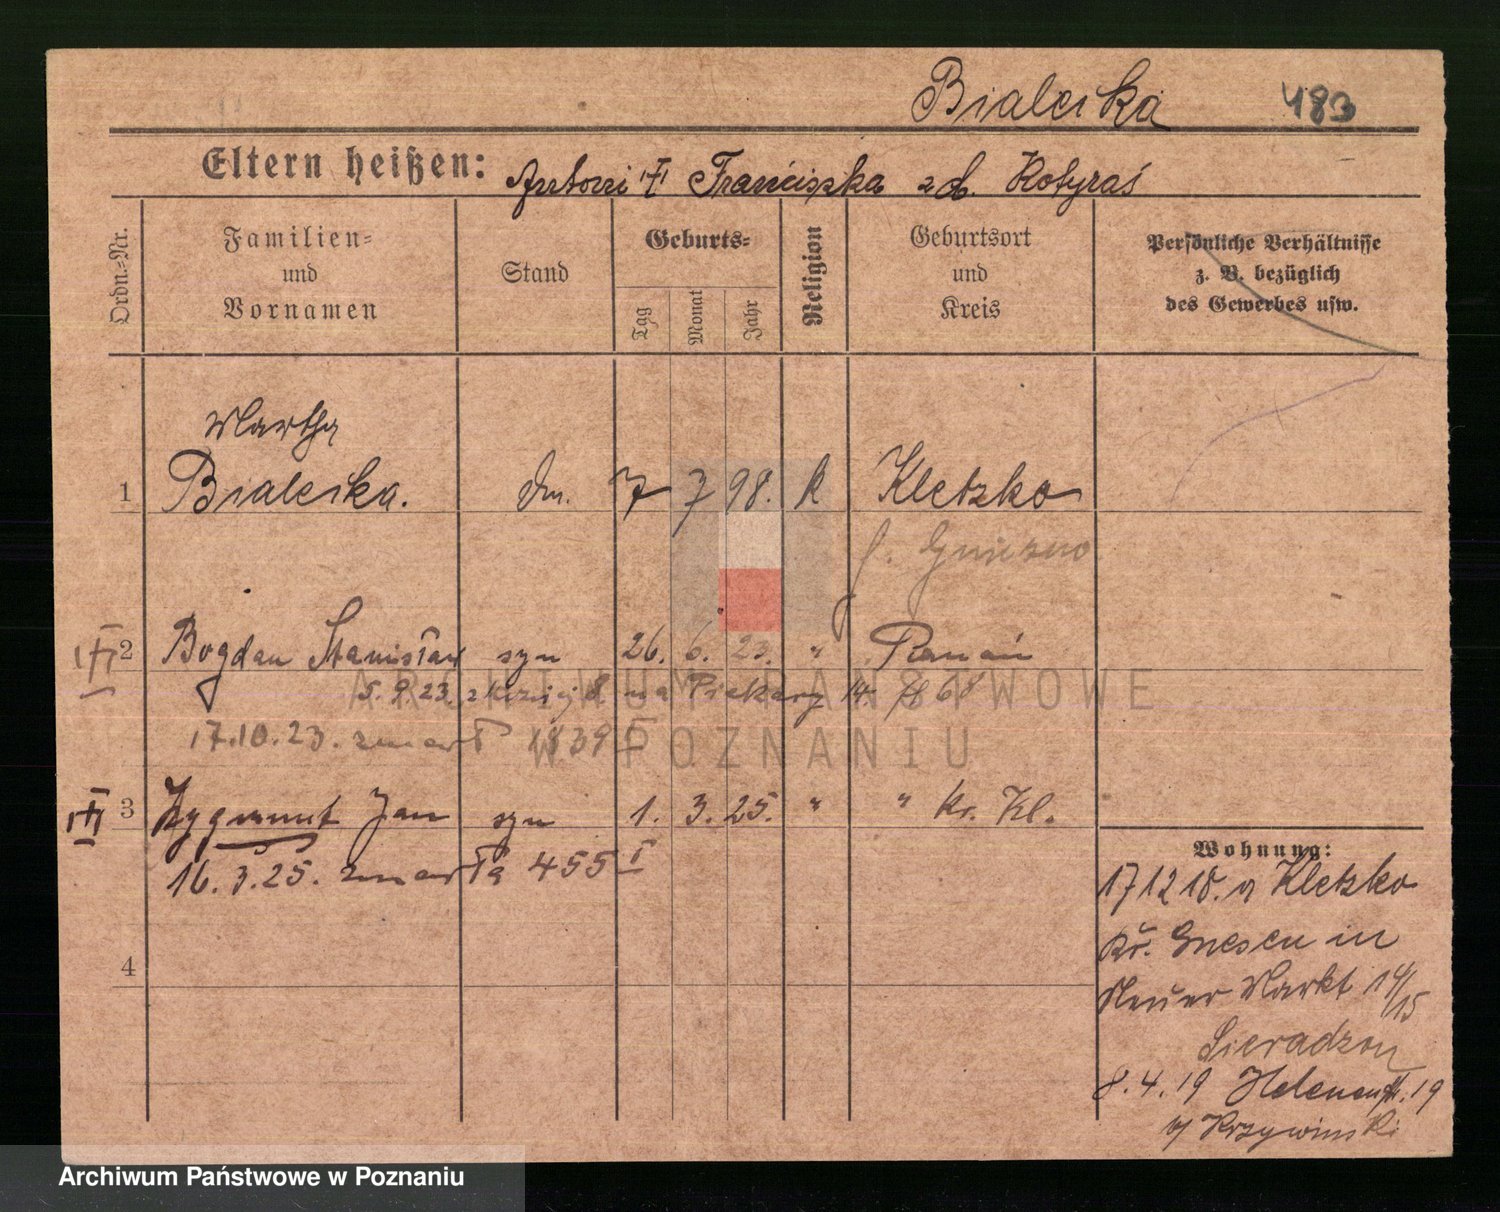 Bialecka 483
Eltern heißen: Antoni Franciszka z d. Kotyras
Ordn.-Nr.
Familien-
und
Vornamen
Stand
Geburts-
Tag
Monat
Jahr
Religion
Geburtsort
und
Kreis
Persönliche Verhältnisse
z. B. bezüglich
des Gewerbes usw.
Martha
1 Bialecka. 7 7 98. k Kletzko
Gniezno
2 Bogdan Stanisław syn 26. 6. 23. " Poznań
5. 9. 23. na Piekary 14. 68
17.10.23. zmarł 1839 I
3 Zygmunt Jan syn 1. 3. 25. " " kr. Kl.
16. 3. 25. zmarł 455 I
4
Wohnung:
17 12 18. v Kletzko
Kr. Gnesen in
Neuer Markt 14/15
Sieradzon
8. 4. 19 Helenenstr. 19
b/ Krzywinski
ARCHIWUM PAŃSTWOWE
W POZNANIU
Archiwum Państwowe w Poznaniu